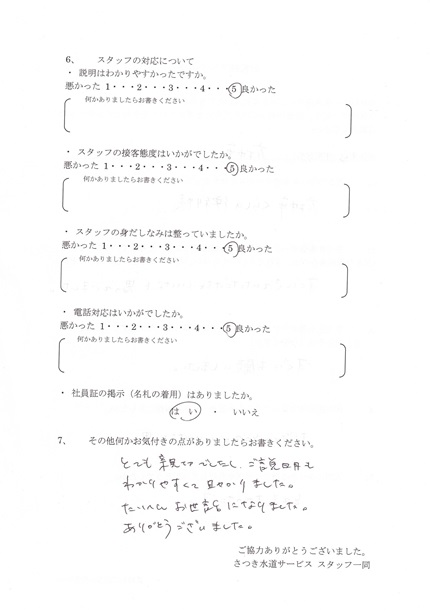 6、 スタッフの対応について
・ 説明はわかりやすかったですか。
悪かった 1・・・2・・・3・・・4・・・5 良かった
何かありましたらお書きください
・ スタッフの接客態度はいかがでしたか。
悪かった 1・・・2・・・3・・・4・・・5 良かった
何かありましたらお書きください
・ スタッフの身だしなみは整っていましたか。
悪かった 1・・・2・・・3・・・4・・・5 良かった
何かありましたらお書きください
・ 電話対応はいかがでしたか。
悪かった 1・・・2・・・3・・・4・・・5 良かった
何かありましたらお書きください
・ 社員証の掲示（名札の着用）はありましたか。
はい ・ いいえ
7、 その他何かお気付きの点がありましたらお書きください。
とても親切でしたし、ご説明も
わかりやすくて助かりました。
たいへんお世話になりました。
ありがとうございました。
ご協力ありがとうございました。
さつき水道サービス スタッフ一同